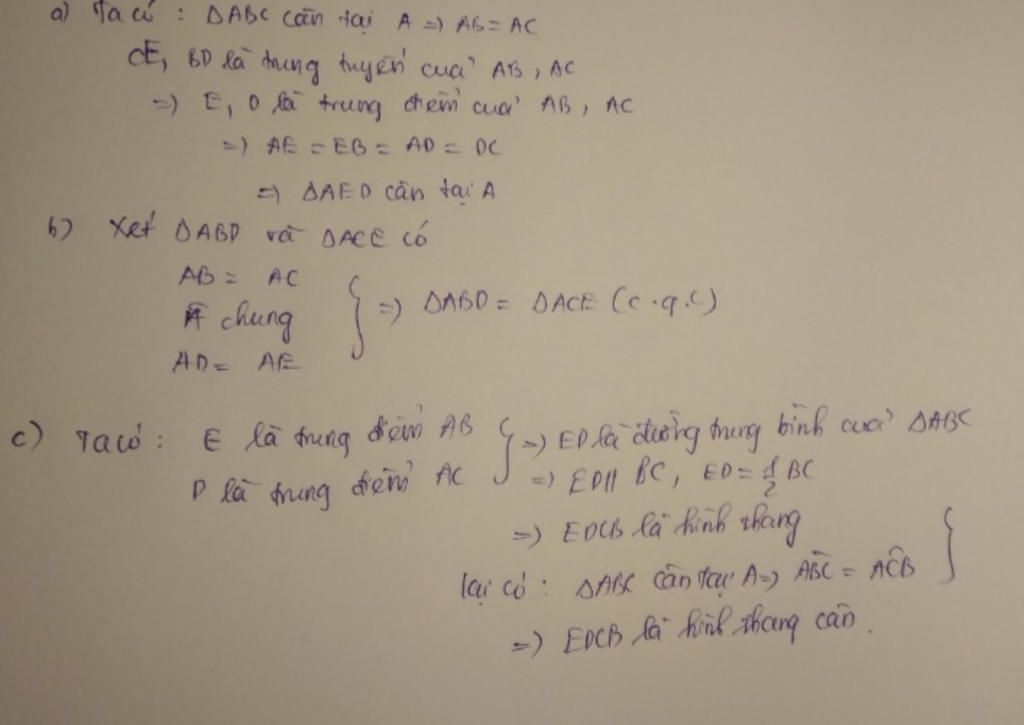 a) Ta có : ΔABC cân tại A => AB = AC
CE, BD là trung tuyến của AB, AC
=> E, D là trung điểm của AB, AC
=> AE = EB = AD = DC
=> ΔAED cân tại A
b) Xét ΔABD và ΔACE có
AB = AC
Â chung
AD = AE
} => ΔABD = ΔACE (c.g.c)
c) Ta có : E là trung điểm AB } => ED là đường trung bình của ΔABC
D là trung điểm AC => ED // BC, ED = 1/2 BC
=> EDCB là hình thang
lại có : ΔABC cân tại A => ABC^ = ACB^ }
=> EDCB là hình thang cân.